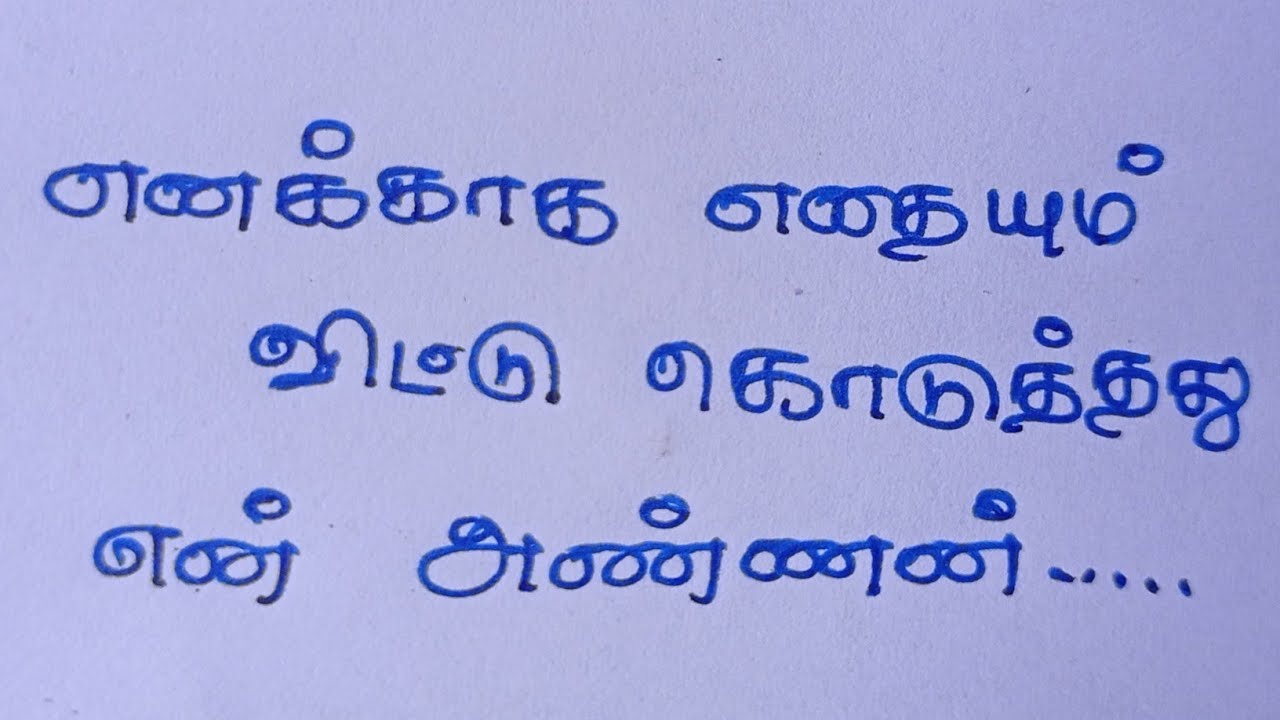 எனக்காக எதையும்
விட்டு கொடுத்தது
என் அண்ணன்.....